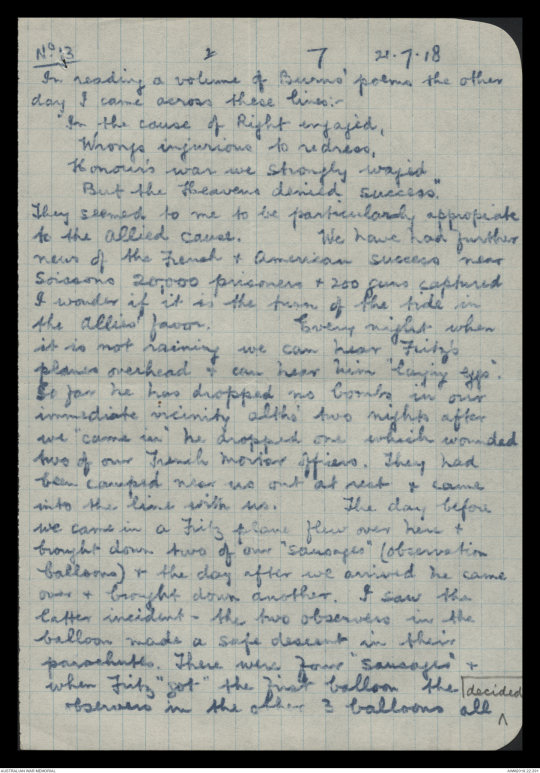 No. 13 2 7 21.7.18
In reading a volume of Burns' poems the other
day I came across these lines:-
"In the cause of Right engaged,
Wrongs injurious to redress,
Honour's war we strongly waged
But the Heavens denied success."
They seemed to me to be particularly appropiate
to the Allied cause. We have had further
news of the French & American success near
Soissons 20,000 prisoners & 200 guns captured
I wonder if it is the turn of the tide in
the Allies' favor. Every night when
it is not raining we can hear Fritz's
planes overhead & can hear him "laying eggs".
So far he has dropped no bombs in our
immediate vicinity altho' two nights after
we "came in" he dropped one which wounded
two of our Trench Mortar officers. They had
been camped near us out at rest & came
into the line with us. The day before
we came in a Fritz plane flew over here &
brought down two of our "sausages" (observation
balloons) & the day after we arrived he came
over & brought down another. I saw the
latter incident - the two observers in the
balloon made a safe descent in their
parachutes. There were four "sausages" &
when Fritz "got" the first balloon the decided
observers in the other 3 balloons all ^
AUSTRALIAN WAR MEMORIAL